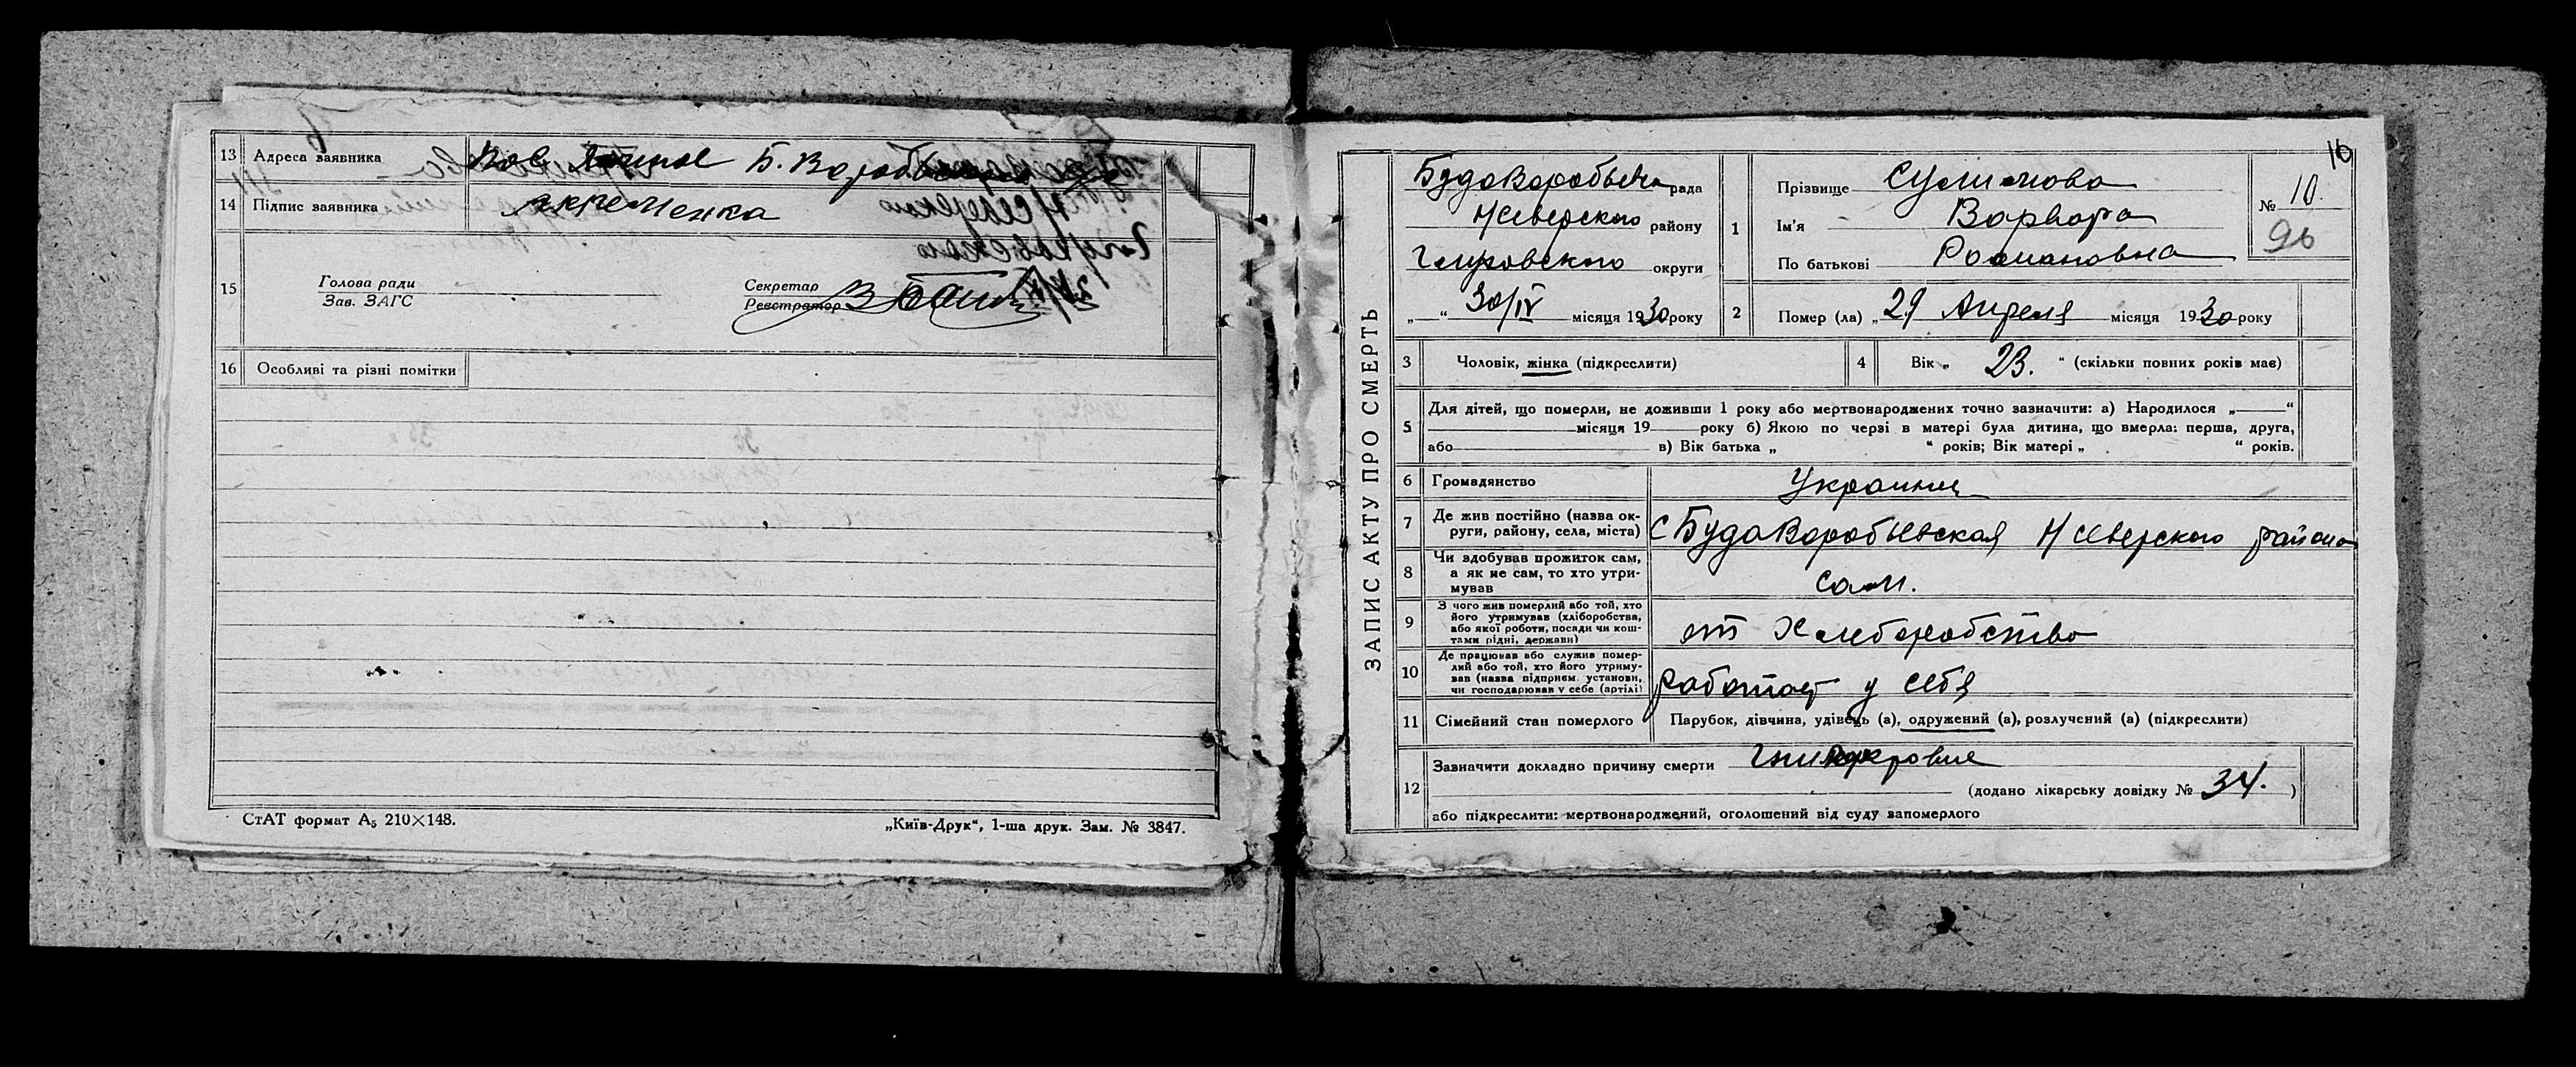 13 Адреса заявника Б. Вороб
14 Підпис заявника
15 Голова ради
Зав. ЗАГС
Секретар
Реєстратор
16 Особливі та різні помітки
СтАТ формат А5 210×148.
„Київ-Друк“, 1-ша друк. Зам. № 3847.
ЗАПИС АКТУ ПРО СМЕРТЬ
16
БудоВоробьевск рада
Н Северского району
Глуховского округи
„ “ 30/IV місяця 1930 року
1 Прізвище Сулимова
Ім'я Варвара
По батькові Романовна
№ 10.
96
2 Помер (ла) „ 29 Апреля місяця 1930 року
3 Чоловік, жінка (підкреслити)
4 Вік „ 23. “ (скільки повних років має)
5 Для дітей, що померли, не доживши 1 року або мертвонароджених точно зазначити: а) Народилося „ “
місяця 19 року б) Якою по черзі в матері була дитина, що вмерла: перша, друга,
або в) Вік батька „ “ років; Вік матері „ “ років.
6 Громадянство Украинц
7 Де жив постійно (назва ок-
руги, району, села, міста) с БудаВоробьевская Н Северского района
8 Чи здобував прожиток сам,
а як не сам, то хто утри-
мував сам.
9 З чого жив померлий або той, хто
його утримував (хліборобства,
або якої роботи, посади чи кош-
тами рідні, держави) от Хлеборобство
10 Де працював або служив помер-
лий або той, хто його утриму-
вав (назва підприєм. установи,
чи господарював у себе (артілі) работает у себя
11 Сімейний стан померлого Парубок, дівчина, удівець (а), одружений (а), розлучений (а) (підкреслити)
12 Зазначити докладно причину смерти
(додано лікарську довідку № 34. )
або підкреслити: мертвонароджений, оголошений від суду запомерлого